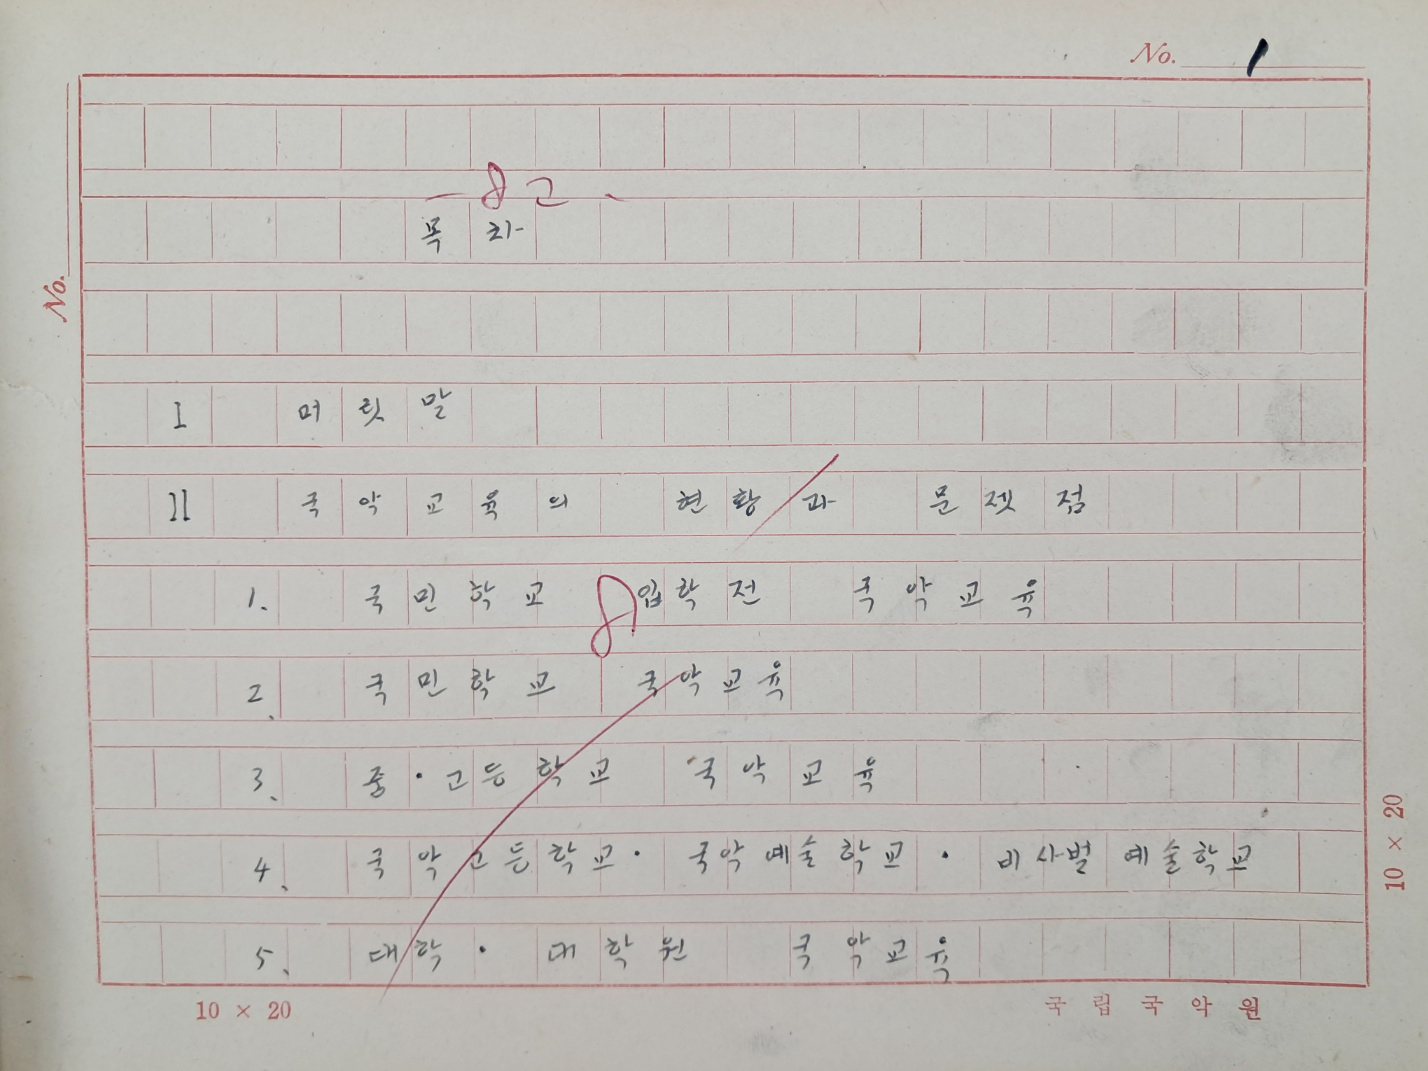 No. 1
8 고
목차
No.
I 머릿말
II 국악교육의 현황과 문젯점
1. 국민학교 입학전 국악교육
2. 국민학교 국악교육
3. 중·고등학교 국악교육
4. 국악고등학교·국악예술학교·비사벌 예술학교
5. 대학·대학원 국악교육
10 × 20
10 × 20 국립국악원